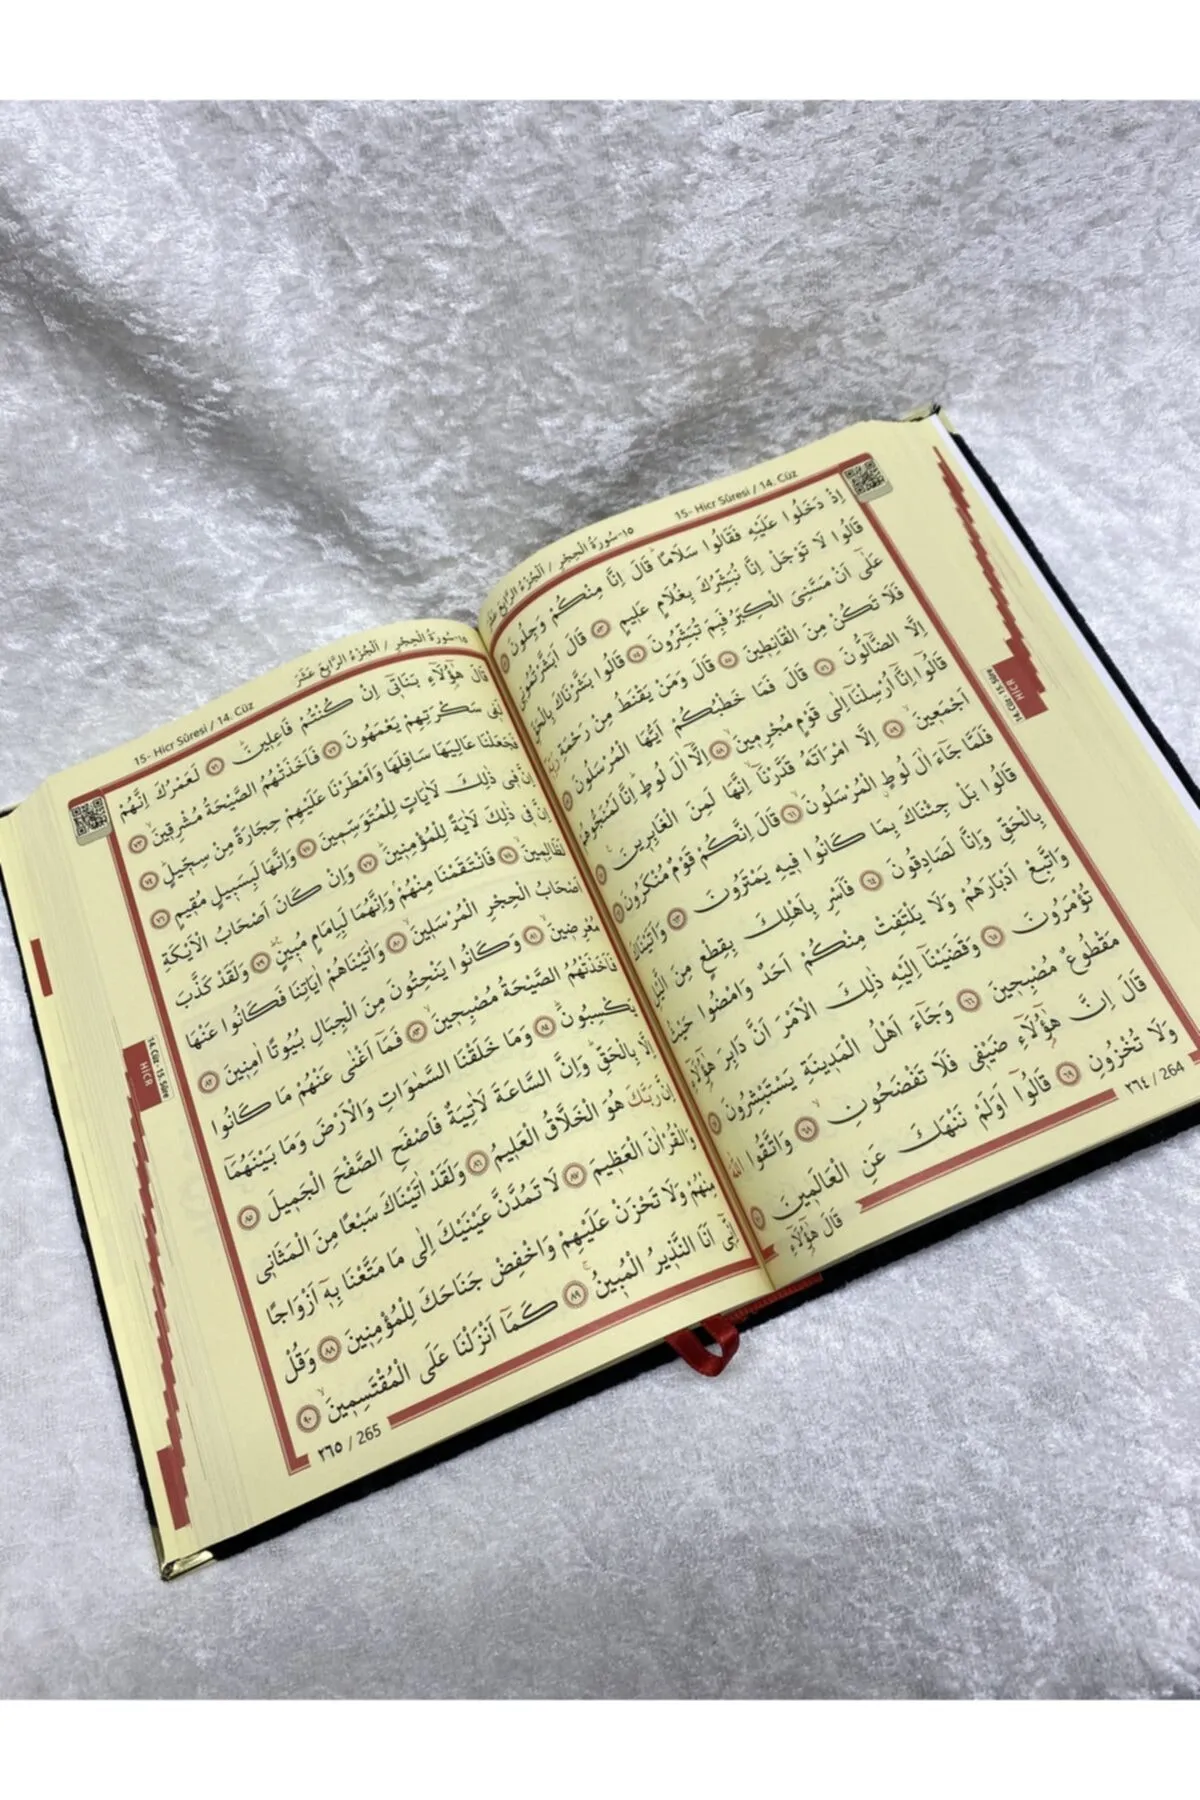 ١٥-سُورَةُ الْحِجْرِ / اَلْجُزْءُ الرَّابِعَ عَشَرَ
15- Hicr Sûresi / 14. Cüz
اِذْ دَخَلُوا عَلَيْهِ فَقَالُوا سَلَامًاۜ قَالَ اِنَّا مِنْكُمْ وَجِلُونَ
قَالُوا لَا تَوْجَلْ اِنَّا نُبَشِّرُكَ بِغُلَامٍ عَلٖيمٍ ﴿٥٣﴾ قَالَ اَبَشَّرْتُمُونٖي
عَلٰٓى اَنْ مَسَّنِيَ الْكِبَرُ فَبِمَ تُبَشِّرُونَ ﴿٥٤﴾ قَالُوا بَشَّرْنَاكَ بِالْحَقِّ
فَلَا تَكُنْ مِنَ الْقَانِطٖينَ ﴿٥٥﴾ قَالَ وَمَنْ يَقْنَطُ مِنْ رَحْمَةِ رَبِّهٖٓ
اِلَّا الضَّٓالُّونَ ﴿٥٦﴾ قَالَ فَمَا خَطْبُكُمْ اَيُّهَا الْمُرْسَلُونَ
قَالُٓوا اِنَّٓا اُرْسِلْنَٓا اِلٰى قَوْمٍ مُجْرِمٖينَ ﴿٥٨﴾ اِلَّٓا اٰلَ لُوطٍۜ اِنَّا لَمُنَجُّوهُمْ
اَجْمَعٖينَ ﴿٥٩﴾ اِلَّا امْرَاَتَهُ قَدَّرْنَٓا اِنَّهَا لَمِنَ الْغَابِرٖينَ
فَلَمَّا جَٓاءَ اٰلَ لُوطٍ الْمُرْسَلُونَ ﴿٦١﴾ قَالَ اِنَّكُمْ قَوْمٌ مُنْكَرُونَ
قَالُوا بَلْ جِئْنَاكَ بِمَا كَانُوا فٖيهِ يَمْتَرُونَ ﴿٦٣﴾ وَاَتَيْنَاكَ
بِالْحَقِّ وَاِنَّا لَصَادِقُونَ ﴿٦٤﴾ فَاَسْرِ بِاَهْلِكَ بِقِطْعٍ مِنَ الَّيْلِ
وَاتَّبِعْ اَدْبَارَهُمْ وَلَا يَلْتَفِتْ مِنْكُمْ اَحَدٌ وَامْضُوا حَيْثُ
تُؤْمَرُونَ ﴿٦٥﴾ وَقَضَيْنَٓا اِلَيْهِ ذٰلِكَ الْاَمْرَ اَنَّ دَابِرَ هٰٓؤُ۬لَٓاءِ
مَقْطُوعٌ مُصْبِحٖينَ ﴿٦٦﴾ وَجَٓاءَ اَهْلُ الْمَدٖينَةِ يَسْتَبْشِرُونَ
قَالَ اِنَّ هٰٓؤُ۬لَٓاءِ ضَيْفٖي فَلَا تَفْضَحُونِ ﴿٦٨﴾ وَاتَّقُوا اللّٰهَ
وَلَا تُخْزُونِ ﴿٦٩﴾ قَالُٓوا اَوَلَمْ نَنْهَكَ عَنِ الْعَالَمٖينَ
قَالَ هٰٓؤُ۬لَٓاءِ
٢٦٤ / 264
14.Cüz - 15. Sûre
HİCR
١٥-سُورَةُ الْحِجْرِ / اَلْجُزْءُ الرَّابِعَ عَشَرَ
15- Hicr Sûresi / 14. Cüz
قَالَ هٰٓؤُ۬لَٓاءِ بَنَاتٖٓي اِنْ كُنْتُمْ فَاعِلٖينَۜ ﴿٧١﴾ لَعَمْرُكَ اِنَّهُمْ
لَفٖي سَكْرَتِهِمْ يَعْمَهُونَ ﴿٧٢﴾ فَاَخَذَتْهُمُ الصَّيْحَةُ مُشْرِقٖينَ ﴿٧٣﴾
فَجَعَلْنَا عَالِيَهَا سَافِلَهَا وَاَمْطَرْنَا عَلَيْهِمْ حِجَارَةً مِنْ سِجّٖيلٍ ﴿٧٤﴾
اِنَّ فٖي ذٰلِكَ لَاٰيَاتٍ لِلْمُتَوَسِّمٖينَ ﴿٧٥﴾ وَاِنَّهَا لَبِسَبٖيلٍ مُقٖيمٍ ﴿٧٦﴾
اِنَّ فٖي ذٰلِكَ لَاٰيَةً لِلْمُؤْمِنٖينَۜ ﴿٧٧﴾ وَاِنْ كَانَ اَصْحَابُ الْاَيْكَةِ
لَظَالِمٖينَ ﴿٧٨﴾ فَانْتَقَمْنَا مِنْهُمْ وَاِنَّهُمَا لَبِاِمَامٍ مُبٖينٍ ﴿٧٩﴾ وَلَقَدْ كَذَّبَ
اَصْحَابُ الْحِجْرِ الْمُرْسَلٖينَ ﴿٨٠﴾ وَاٰتَيْنَاهُمْ اٰيَاتِنَا فَكَانُوا عَنْهَا
مُعْرِضٖينَ ﴿٨١﴾ وَكَانُوا يَنْحِتُونَ مِنَ الْجِبَالِ بُيُوتًا اٰمِنٖينَ ﴿٨٢﴾
فَاَخَذَتْهُمُ الصَّيْحَةُ مُصْبِحٖينَ ﴿٨٣﴾ فَمَٓا اَغْنٰى عَنْهُمْ مَا كَانُوا
يَكْسِبُونَۜ ﴿٨٤﴾ وَمَا خَلَقْنَا السَّمٰوَاتِ وَالْاَرْضَ وَمَا بَيْنَهُمَٓا
اِلَّا بِالْحَقِّۜ وَاِنَّ السَّاعَةَ لَاٰتِيَةٌ فَاصْفَحِ الصَّفْحَ الْجَمٖيلَ ﴿٨٥﴾
اِنَّ رَبَّكَ هُوَ الْخَلَّاقُ الْعَلٖيمُ ﴿٨٦﴾ وَلَقَدْ اٰتَيْنَاكَ سَبْعًا مِنَ الْمَثَانٖي
وَالْقُرْاٰنَ الْعَظٖيمَ ﴿٨٧﴾ لَا تَمُدَّنَّ عَيْنَيْكَ اِلٰى مَا مَتَّعْنَا بِهٖٓ اَزْوَاجًا
مِنْهُمْ وَلَا تَحْزَنْ عَلَيْهِمْ وَاخْفِضْ جَنَاحَكَ لِلْمُؤْمِنٖينَ ﴿٨٨﴾ وَقُلْ
اِنّٖٓي اَنَا النَّذٖيرُ الْمُبٖينُ ﴿٨٩﴾ كَمَٓا اَنْزَلْنَا عَلَى الْمُقْتَسِمٖينَ ﴿٩٠﴾
٢٦٥ / 265
14.Cüz - 15. Sûre
HİCR